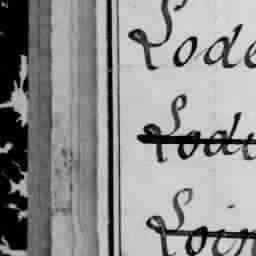 Lode
Lode
Loin